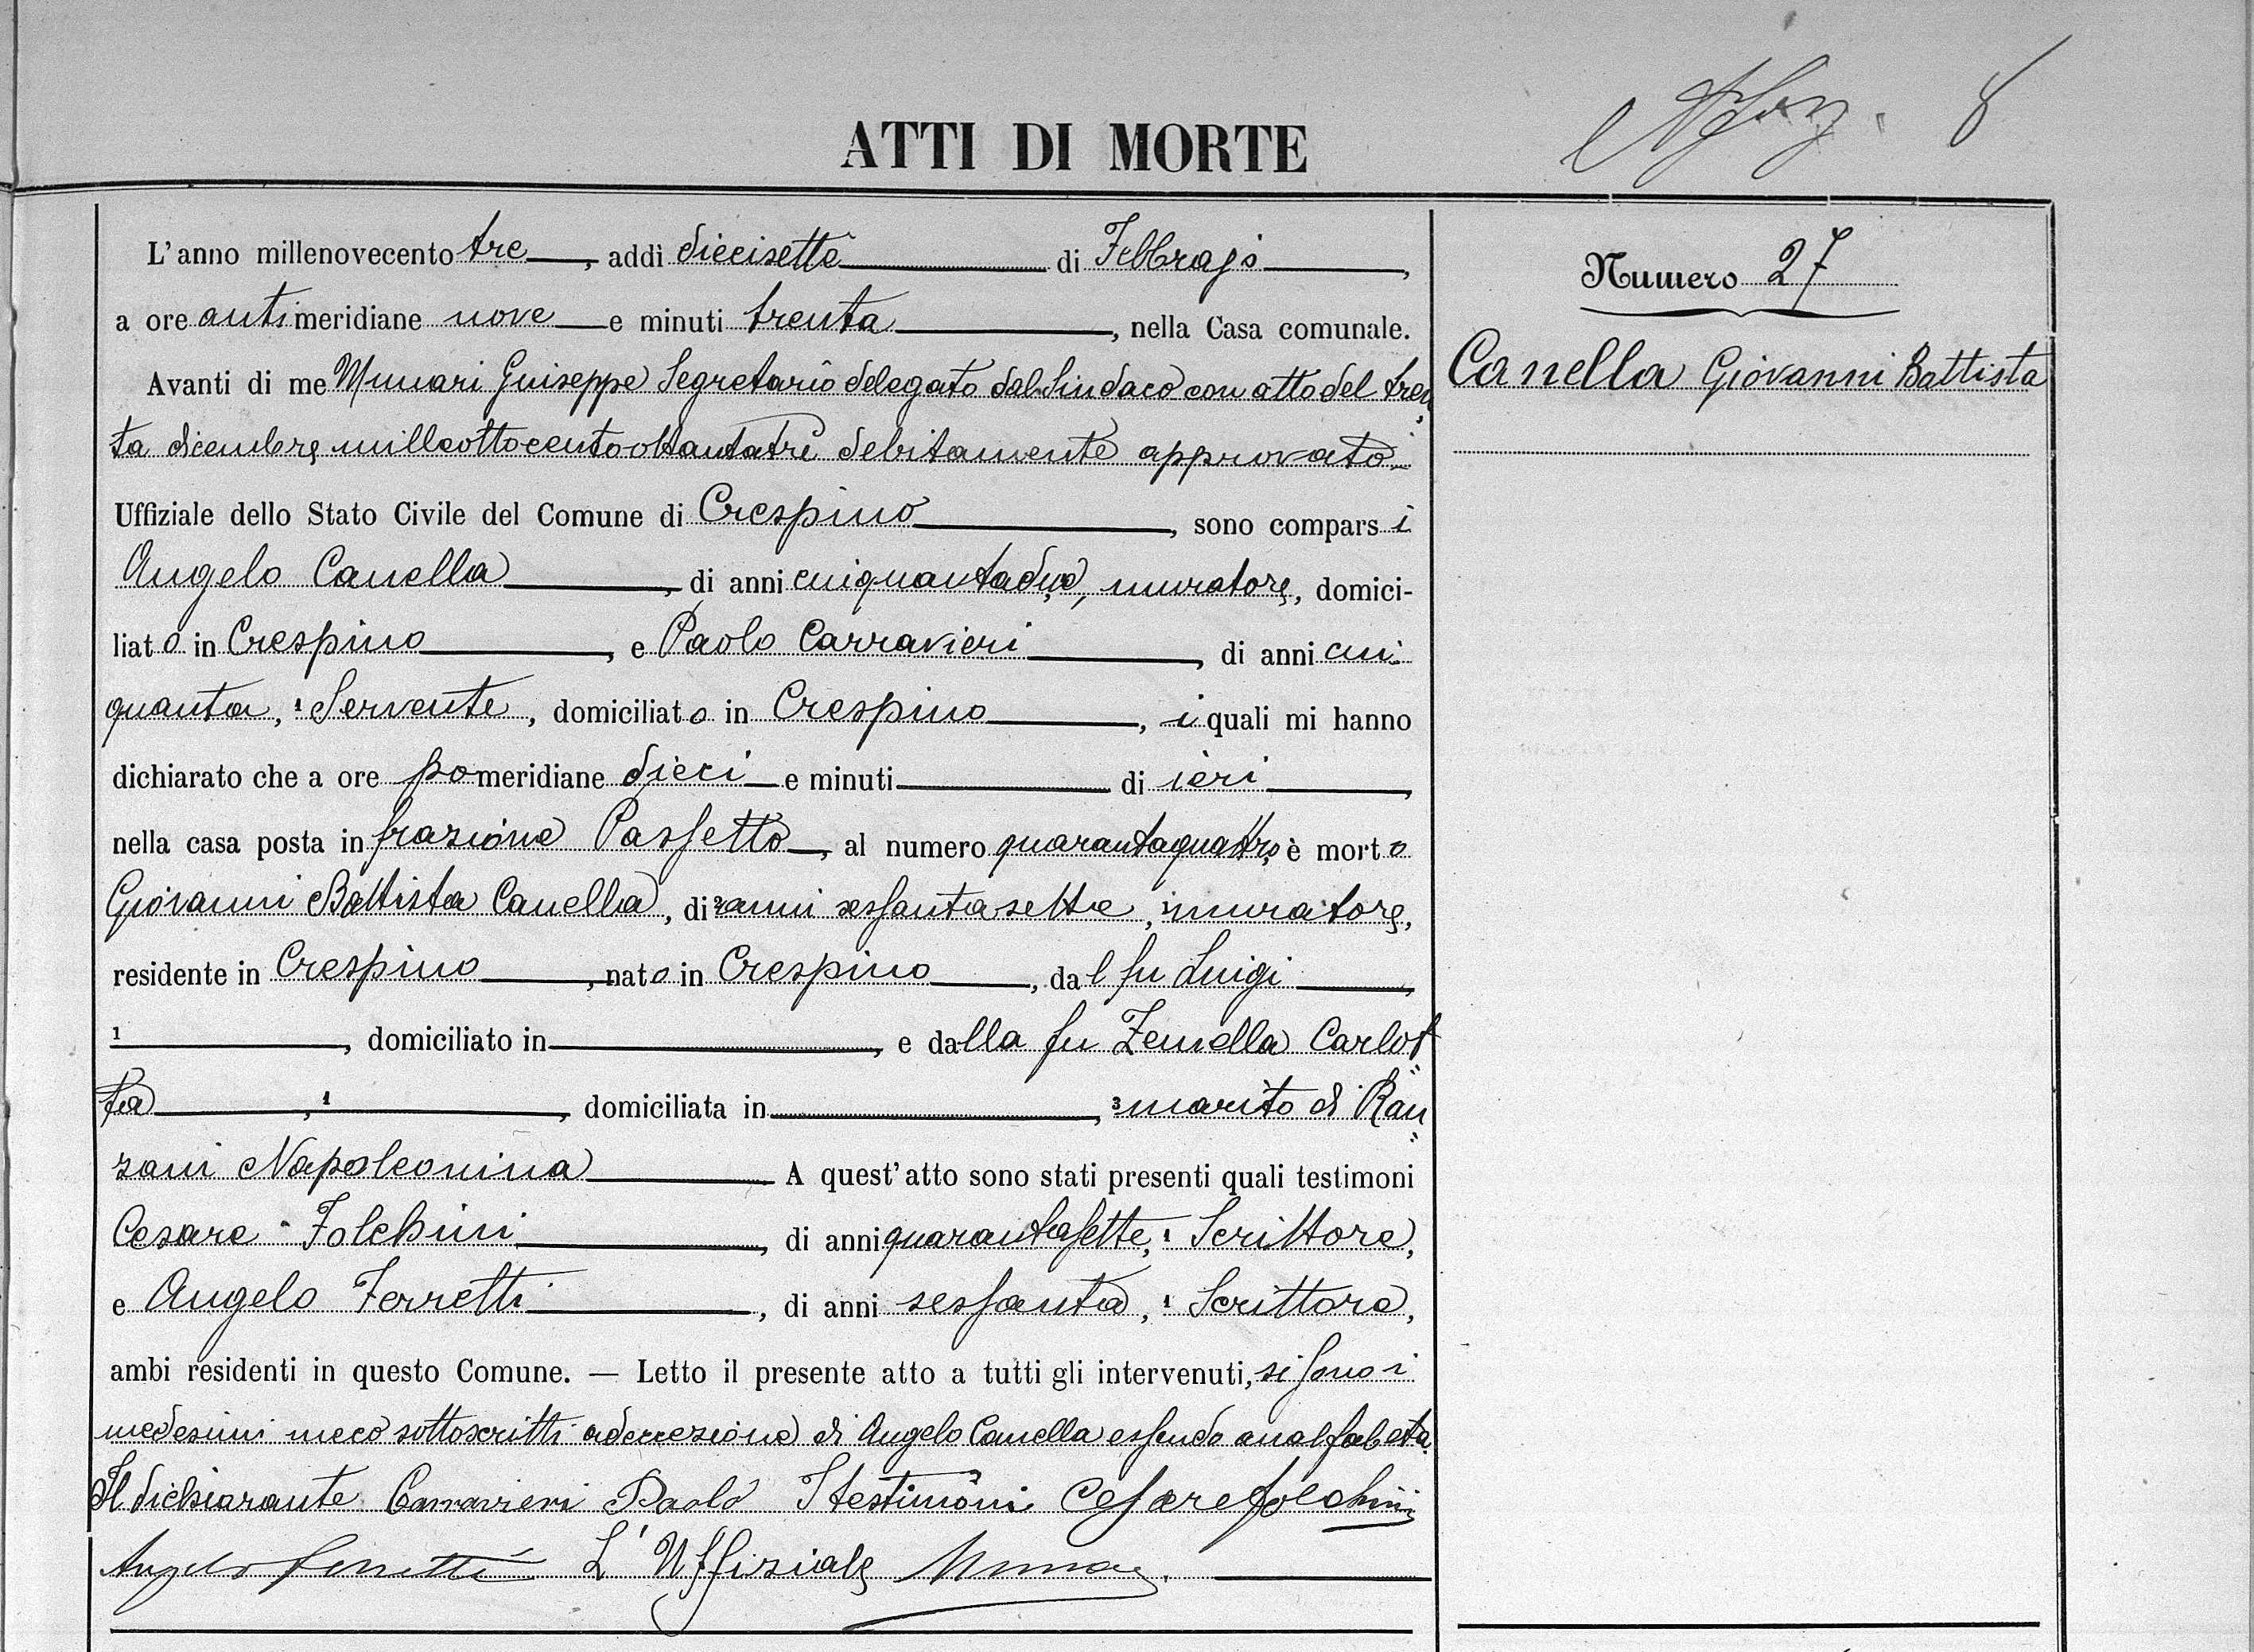 8
ATTI DI MORTE
L'anno millenovecento tre, addì diecisette di Febbrajo,
a ore antimeridiane nove e minuti trenta, nella Casa comunale.
Avanti di me Munari Giuseppe Segretario delegato dal Sindaco con atto del tren
ta dicembre milleottocentoottantatre debitamente approvato
Uffiziale dello Stato Civile del Comune di Crespino, sono comparsi
Angelo Canella, di anni cinquantadue, muratore, domici-
liato in Crespino, e Paolo Carravieri, di anni cin
quanta, 1 Servente, domiciliato in Crespino, i quali mi hanno
dichiarato che a ore pomeridiane dieci e minuti di ieri,
nella casa posta in frazione Passetto, al numero quarantaquattro è morto
Giovanni Battista Canella, di 2 anni sessantasette, muratore,
residente in Crespino, nato in Crespino, dal fu Luigi,
1, domiciliato in, e dalla fu Zemella Carlot
ta, 1, domiciliata in, 3 marito di Ran
zani Napoleonina A quest'atto sono stati presenti quali testimoni
Cesare Folchini, di anni quarantasette, 1 Scrittore,
e Angelo Ferretti, di anni sessanta, 1 Scrittore,
ambi residenti in questo Comune. — Letto il presente atto a tutti gli intervenuti, si sono i
medesimi meco sottoscritti ad eccezione di Angelo Canella essendo analfabeta
Il dichiarante Carravieri Paolo I testimoni Cesare Folchini
Angelo Ferretti L'Uffiziale Munari
Numero 27
Canella Giovanni Battista